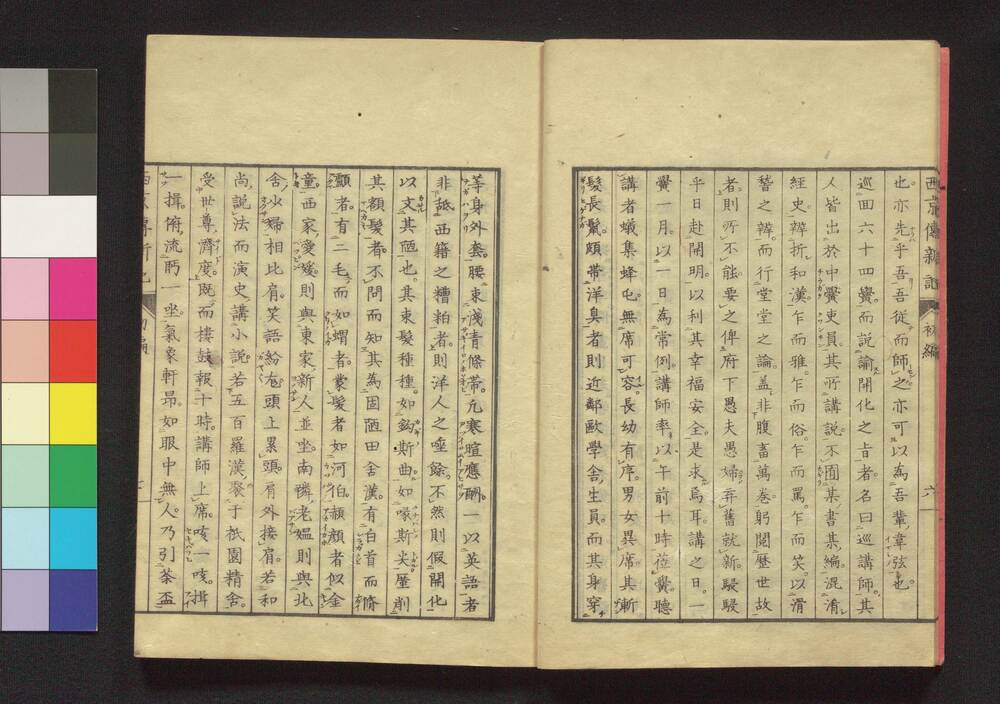 西京傳新記 初編 六
也。亦先乎吾吾從而師之亦可以為吾輩韋弦也。
巡回六十四黌。而說諭開化之旨者。名曰巡講師。其
人皆出於中黌吏員。其所講說。不囿某書某編。混淆
經史辨折和漢。乍而雅。乍而俗。乍而罵。乍而笑。以滑
稽之辨。而行堂堂之論。蓋非腹畜萬卷。躬閱歷世故
者則所不能。要之俾府下愚夫愚婦。弃舊就新。駸駸
乎日赴開明。以利其幸福安全。是求焉耳。講之日。一
黌一月。以一日為常例。講師率以午前十時莅黌。聽
講者蟻集蜂屯。無席可容。長幼有序。男女異席。其漸
髮長鬣。頗帶洋臭者。則近鄰歐學舍生員。而其身穿
等身外套。腰束淺青條帶。凢寒暄應酬。一以英語者
非舐西籍之糟粕者。則洋人之唾餘。不然則假開化
以文其陋也。其束髮種種。如鈎斯曲。如喙斯尖。廑削
其額髮者。不問而知其為固陋田舍漢。有白首而脩
顱者。有二毛而如蝟者。蒙髮者如河伯。赬顏者似金
童。西家愛媛。則與東家新人並坐。南鄰老媼則與北
舍少婦相比肩。笑語紛龐。頭上累頭。肩外接肩。若和
尚說法而演史講小說。若五百羅漢。聚于祇園精舍。
受世尊濟度。既而樓鼓報十時。講師上席。咳一咳。揖
一揖。俯流眄一坐。氣象軒昂。如眼中無人。乃引茶盃